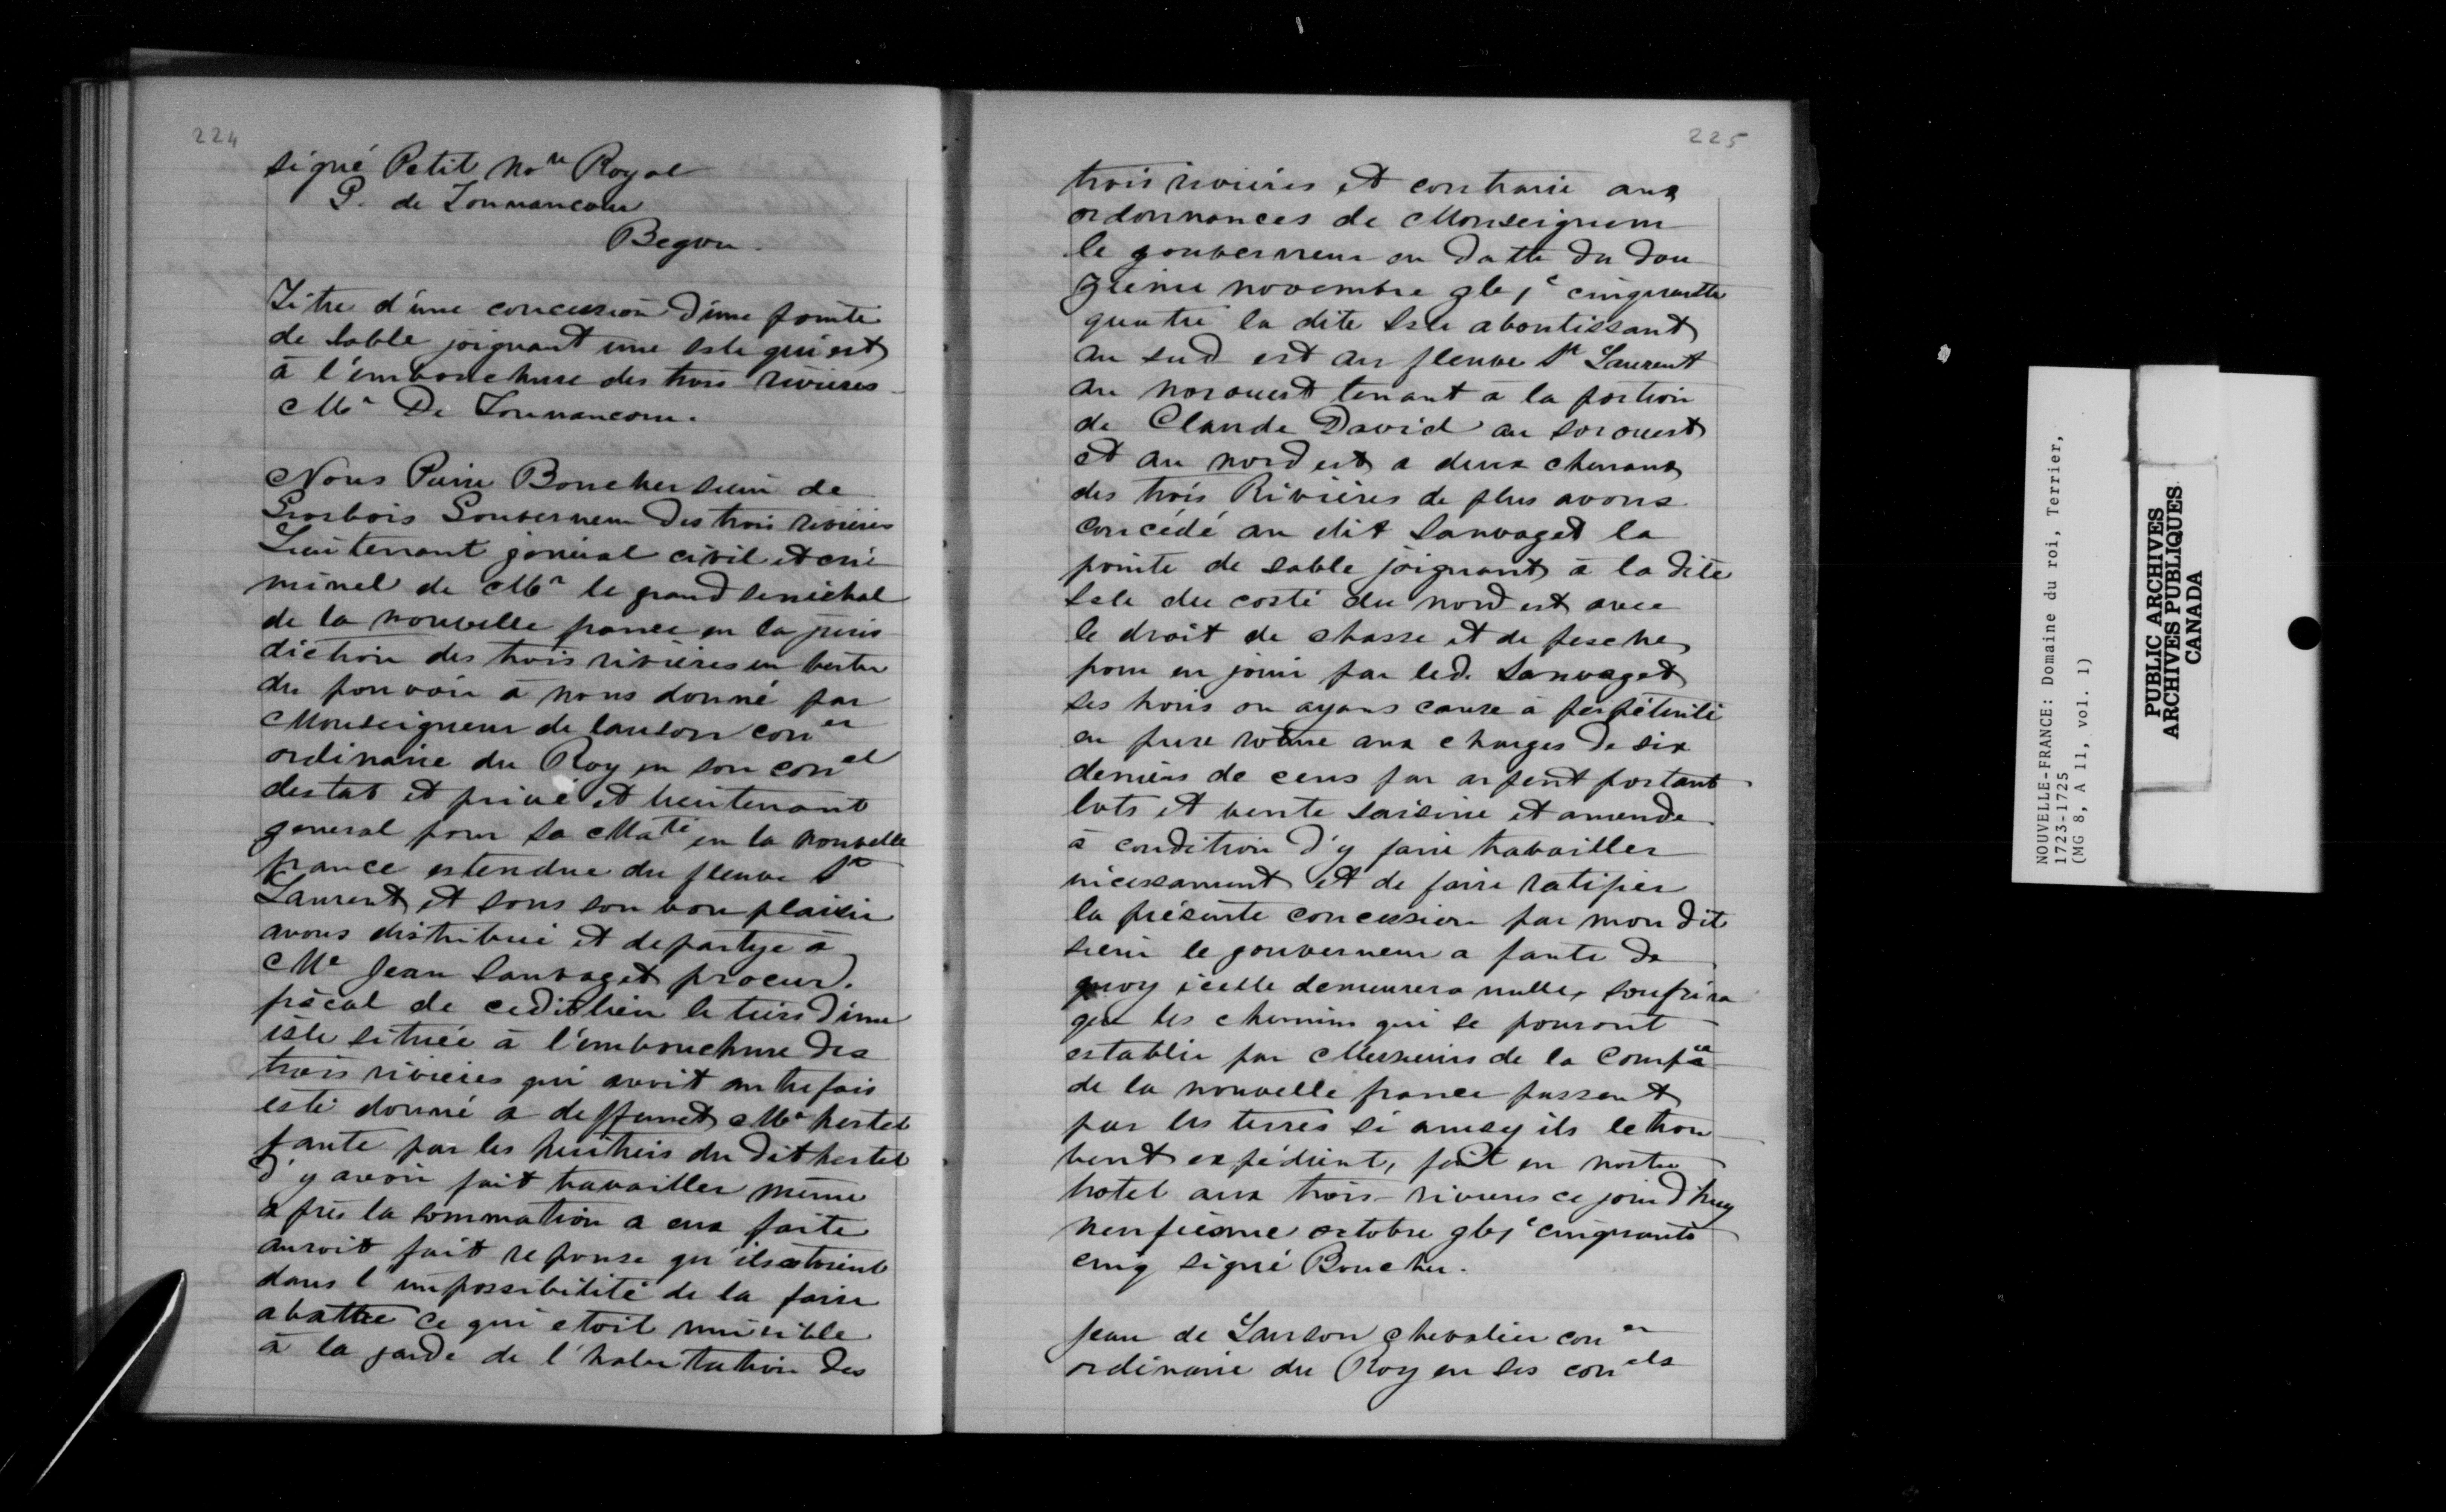 224
signé Petit No^re Royal
P. de Tonnancour
Begon.
Titre d'une concession d'une pointe
de sable joignant une isle qui est
à l'embouchure des trois rivieres
M^r De Tonnancour.
Nous Pierre Boucher sieur de
Grosbois Gouverneur des trois rivières
Lieutenant général civil et cri
minel de M^r le grand senéchal
de la nouvelle france en la juris
diction des trois rivières en vertu
du pouvoir à nous donné par
Monseigneur de lauson con^er
ordinaire du Roy en son con^el
destat et privé et lieutenant
general pour sa Ma^té en la nouvelle
france estendue du fleuve S^t
Laurent et sous son bon plaisir
avons distribué et departye à
M^e Jean Sauvaget procur.
fiscal de cedit lieu le tiers d'une
isle située à l'embouchure des
trois rivieres qui avoit autrefois
esté donné a deffunct M^r hertel
faute par les heritiers du dit hertel
d'y avoir fait travailler même
après la sommation a eux faite
auroit fait reponse qu'ils etoient
dans l'impossibilité de la faire
abattre ce qui etoit nuisible
à la garde de l'habitation des
225
trois rivières et contraire aux
ordonnances de Monseigneur
le gouverneur en datte du dou
zieme novembre gbj^c cinquante
quatre la dite Isle aboutissant
au sud est au fleuve S^t Laurent
au norouest tenant à la portion
de Claude David au sorouest
et au nord est a deux chenaux
des trois Rivières de plus avons
concédé au dit Sauvaget la
pointe de sable joignant à la dite
Isle du costé du nord est avec
le droit de chasse et de pesche
pour en jouir par led. Sauvaget
ses hoirs ou ayans cause à perpétuité
en pure roture aux charges de six
deniers de cens par arpent portant
lots et vente saisine et amende
à condition d'y faire travailler
incessament et de faire ratifier
la présente concession par mon dit
sieur le gouverneur a faute de
quoy icelle demeurera nulle, soufrira
que les chemins qui se pouront
establir par Messieurs de la Comp^ie
de la nouvelle france passent
par les terres si ainsy ils le trou
vent expédient, fait en nostre
hotel aux trois-rivieres ce jourd'huy
neufiesme octobre gbj^c cinquante
cinq signé Boucher.
Jean de Lauson chevalier con^er
ordinaire du Roy en ses con^els
NOUVELLE-FRANCE: Domaine du roi, Terrier,
1723-1725
(MG 8, A 11, vol. 1)
PUBLIC ARCHIVES
ARCHIVES PUBLIQUES
CANADA